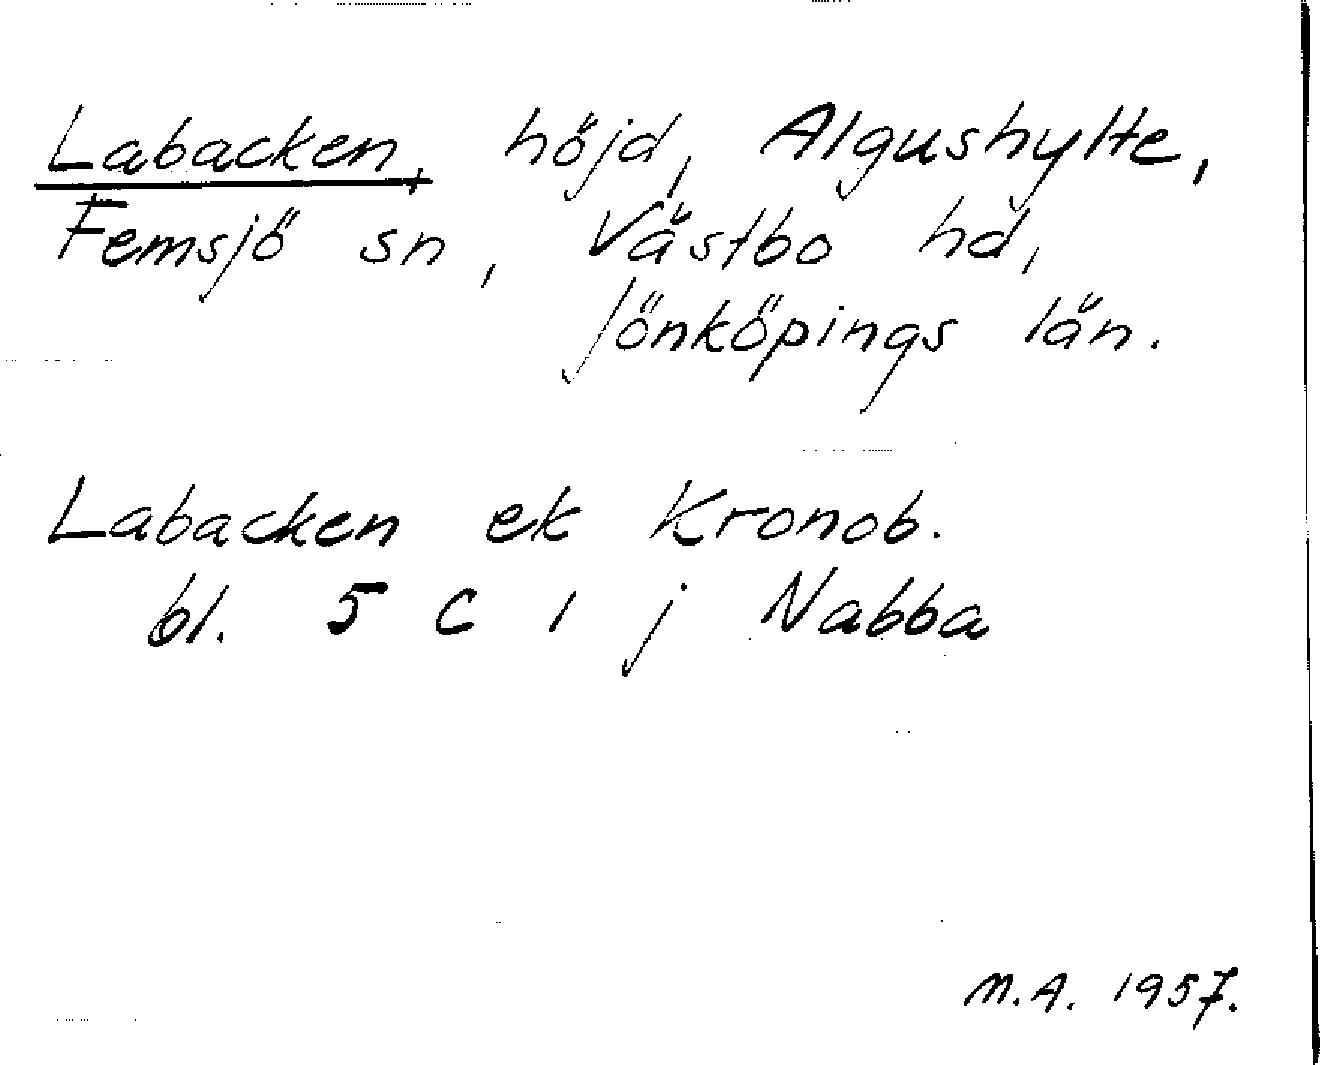 Labacken, höjd, Algushylte,
Femsjö sn, Västbo hd,
Jönköpings län.
Labacken ek Kronob.
bl. 5 C 1 j Nabba
M.A. 1957.